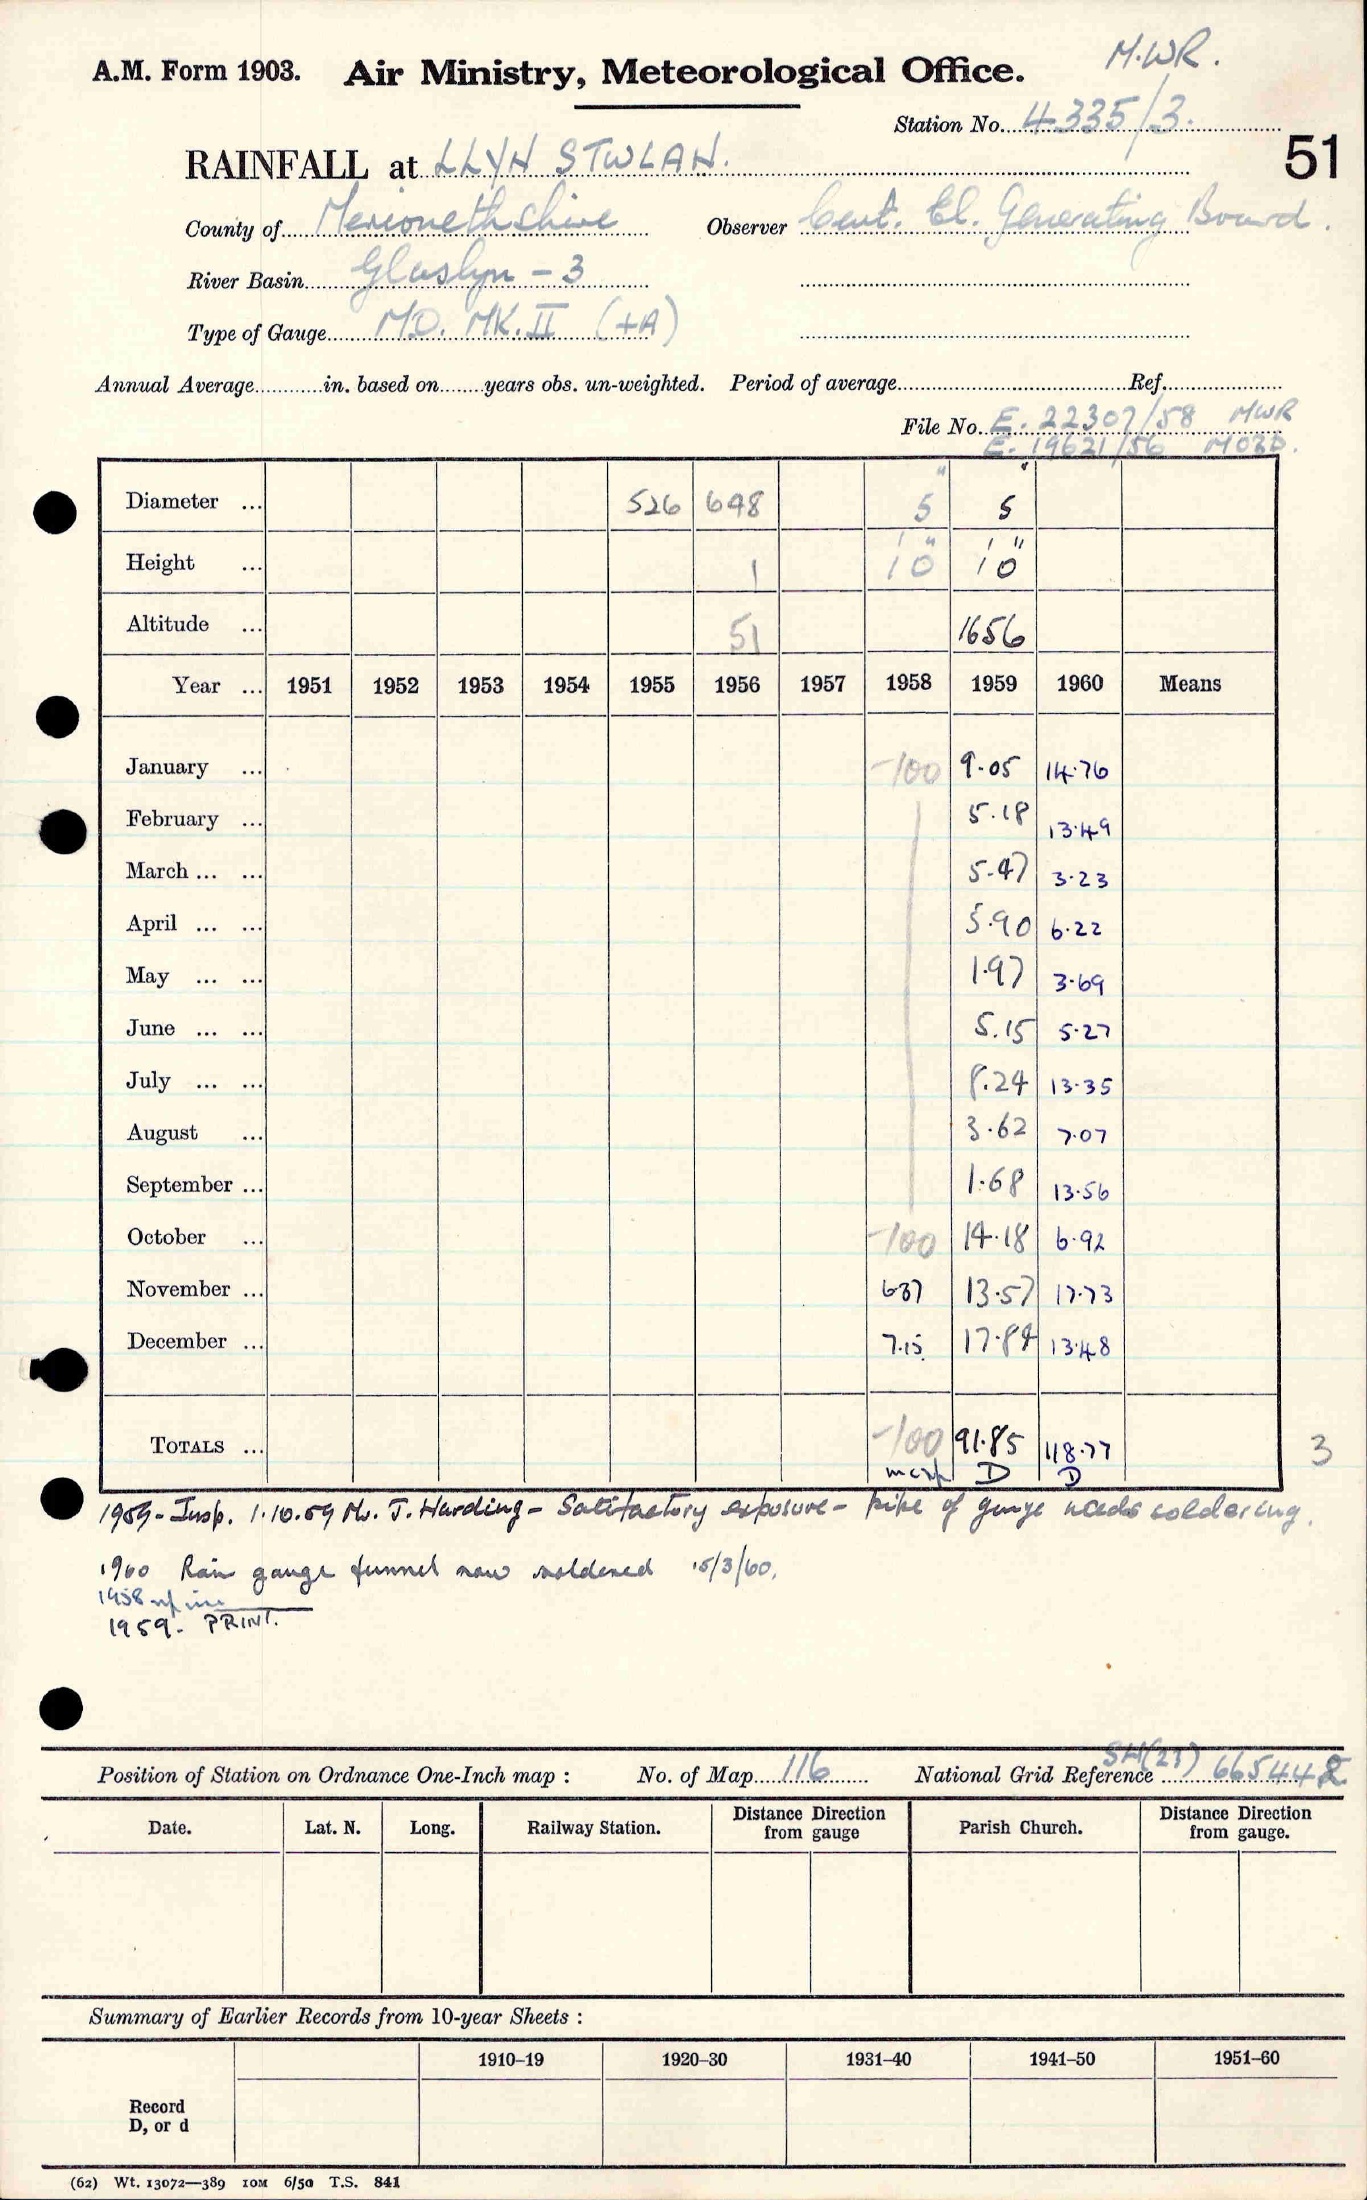 M.WR.
A.M. Form 1903. Air Ministry, Meteorological Office.
Station No. 4335/3.
51
RAINFALL at LLYN STWLAN.
County of Merionethshire Observer Cent. El. Generating Board.
River Basin Glaslyn - 3
Type of Gauge MO. MK. II (+A)
Annual Average in. based on years obs. un-weighted. Period of average Ref.
File No. E. 22307/58 MWR
E. 19621/56 MO3D.
Diameter ... 526 648 5" 5"
Height ... 1 1' 0" 1' 0"
Altitude ... 51 1656
Year ... 1951 1952 1953 1954 1955 1956 1957 1958 1959 1960 Means
January ... -100 9.05 14.76
February ... 5.18 13.49
March ... ... 5.47 3.23
April ... ... 5.90 6.22
May ... ... 1.97 3.69
June ... ... 5.15 5.27
July ... ... 8.24 13.35
August ... 3.62 7.07
September ... 1.68 13.56
October ... -100 14.18 6.92
November ... 637 13.57 17.73
December ... 7.15 17.84 13.48
TOTALS ... -100 91.85 118.77
D D
3
1959 - Insp. 1.10.59 Mr. J. Harding - Satisfactory exposure - pipe of gauge needs soldering.
1960 Rain gauge funnel now soldered 15/3/60.
1958
1959 - PRINT.
Position of Station on Ordnance One-Inch map : No. of Map 116 National Grid Reference SH(23) 665442
Date. Lat. N. Long. Railway Station. Distance Direction from gauge Parish Church. Distance Direction from gauge.
Summary of Earlier Records from 10-year Sheets :
1910–19 1920–30 1931–40 1941–50 1951–60
Record
D, or d
(62) Wt. 13072—389 10M 6/50 T.S. 841